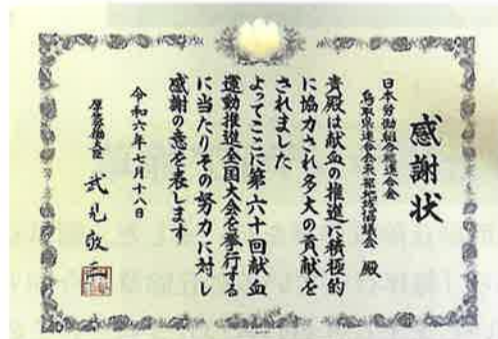 感謝状
日本労働組合総連合会
鳥取県連合会東部地域協議会 殿
貴殿は献血の推進に積極的
に協力され多大の貢献を
されました
よってここに第六十回献血
運動推進全国大会を挙行する
に当たりその努力に対し
感謝の意を表します
令和六年七月十八日
厚生労働大臣 武見敬三